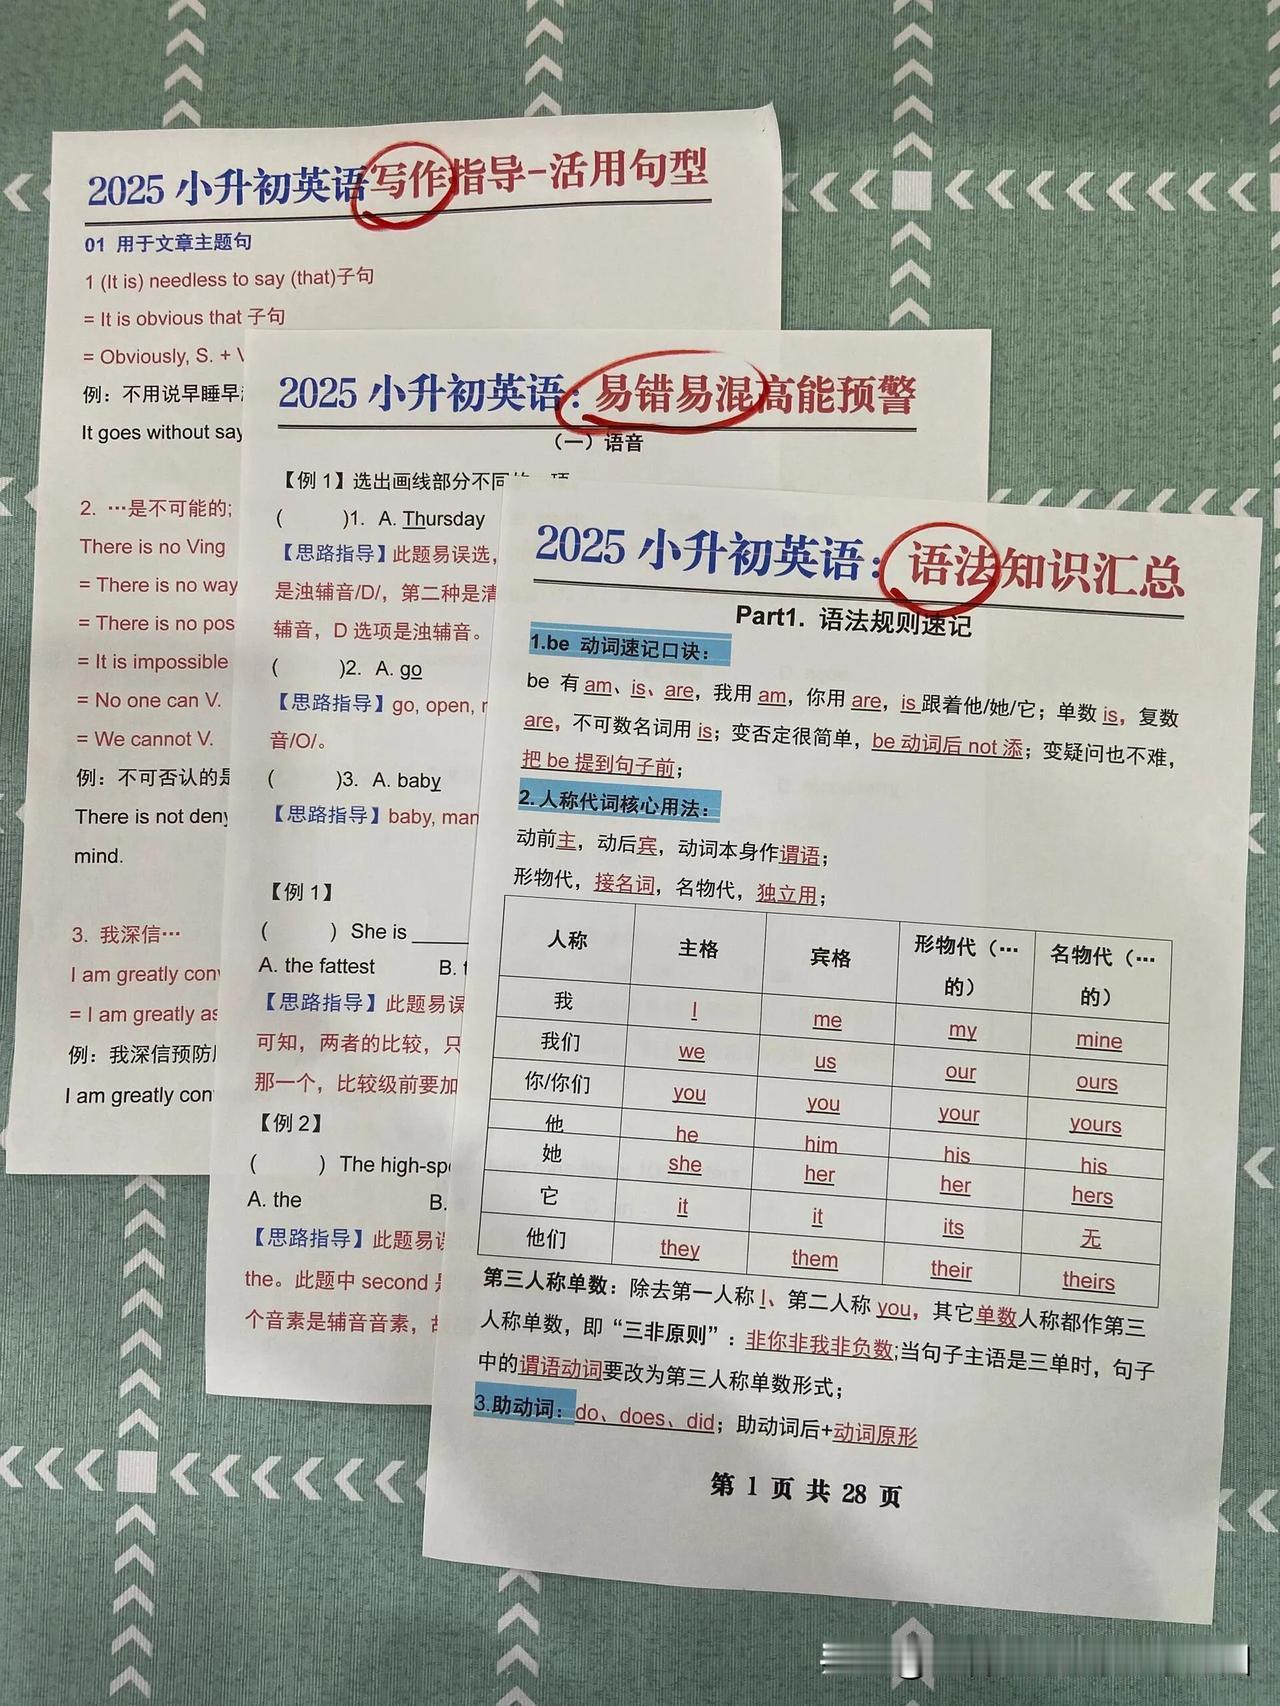 2025 小升初英语写作指导-活用句型
01 用于文章主题句
1 (It is) needless to say (that)子句
= It is obvious that 子句
= Obviously, S. +
例：不用说早睡早
It goes without say
2. …是不可能的;
There is no Ving
= There is no way
= There is no pos
= It is impossible
= No one can V.
= We cannot V.
例：不可否认的是
There is not deny
mind.
3. 我深信…
I am greatly conv
= I am greatly as
例：我深信预防
I am greatly con
2025 小升初英语：易错易混高能预警
（一）语音
【例 1】选出画线部分不同的一项
( )1. A. Thursday
【思路指导】此题易误选，
是浊辅音/D/，第二种是清
辅音，D 选项是浊辅音。
( )2. A. go
【思路指导】go, open,
音/O/。
( )3. A. baby
【思路指导】baby, man
【例 1】
( ) She is ____
A. the fattest B.
【思路指导】此题易误
可知，两者的比较，只
那一个，比较级前要加
【例 2】
( ) The high-spe
A. the B.
【思路指导】此题易误
the。此题中 second 是
个音素是辅音音素，故
2025 小升初英语：语法知识汇总
Part1. 语法规则速记
1.be 动词速记口诀：
be 有 am、is、are，我用 am，你用 are，is 跟着他/她/它；单数 is，复数
are，不可数名词用 is；变否定很简单，be 动词后 not 添；变疑问也不难，
把 be 提到句子前；
2.人称代词核心用法：
动前主，动后宾，动词本身作谓语；
形物代，接名词，名物代，独立用；
人称 主格 宾格 形物代（…的） 名物代（…的）
我 I me my mine
我们 we us our ours
你/你们 you you your yours
他 he him his his
她 she her her hers
它 it it its 无
他们 they them their theirs
第三人称单数：除去第一人称 I、第二人称 you，其它单数人称都作第三
人称单数，即“三非原则”：非你非我非负数;当句子主语是三单时，句子
中的谓语动词要改为第三人称单数形式；
3.助动词：do、does、did；助动词后+动词原形
第 1 页 共 28 页